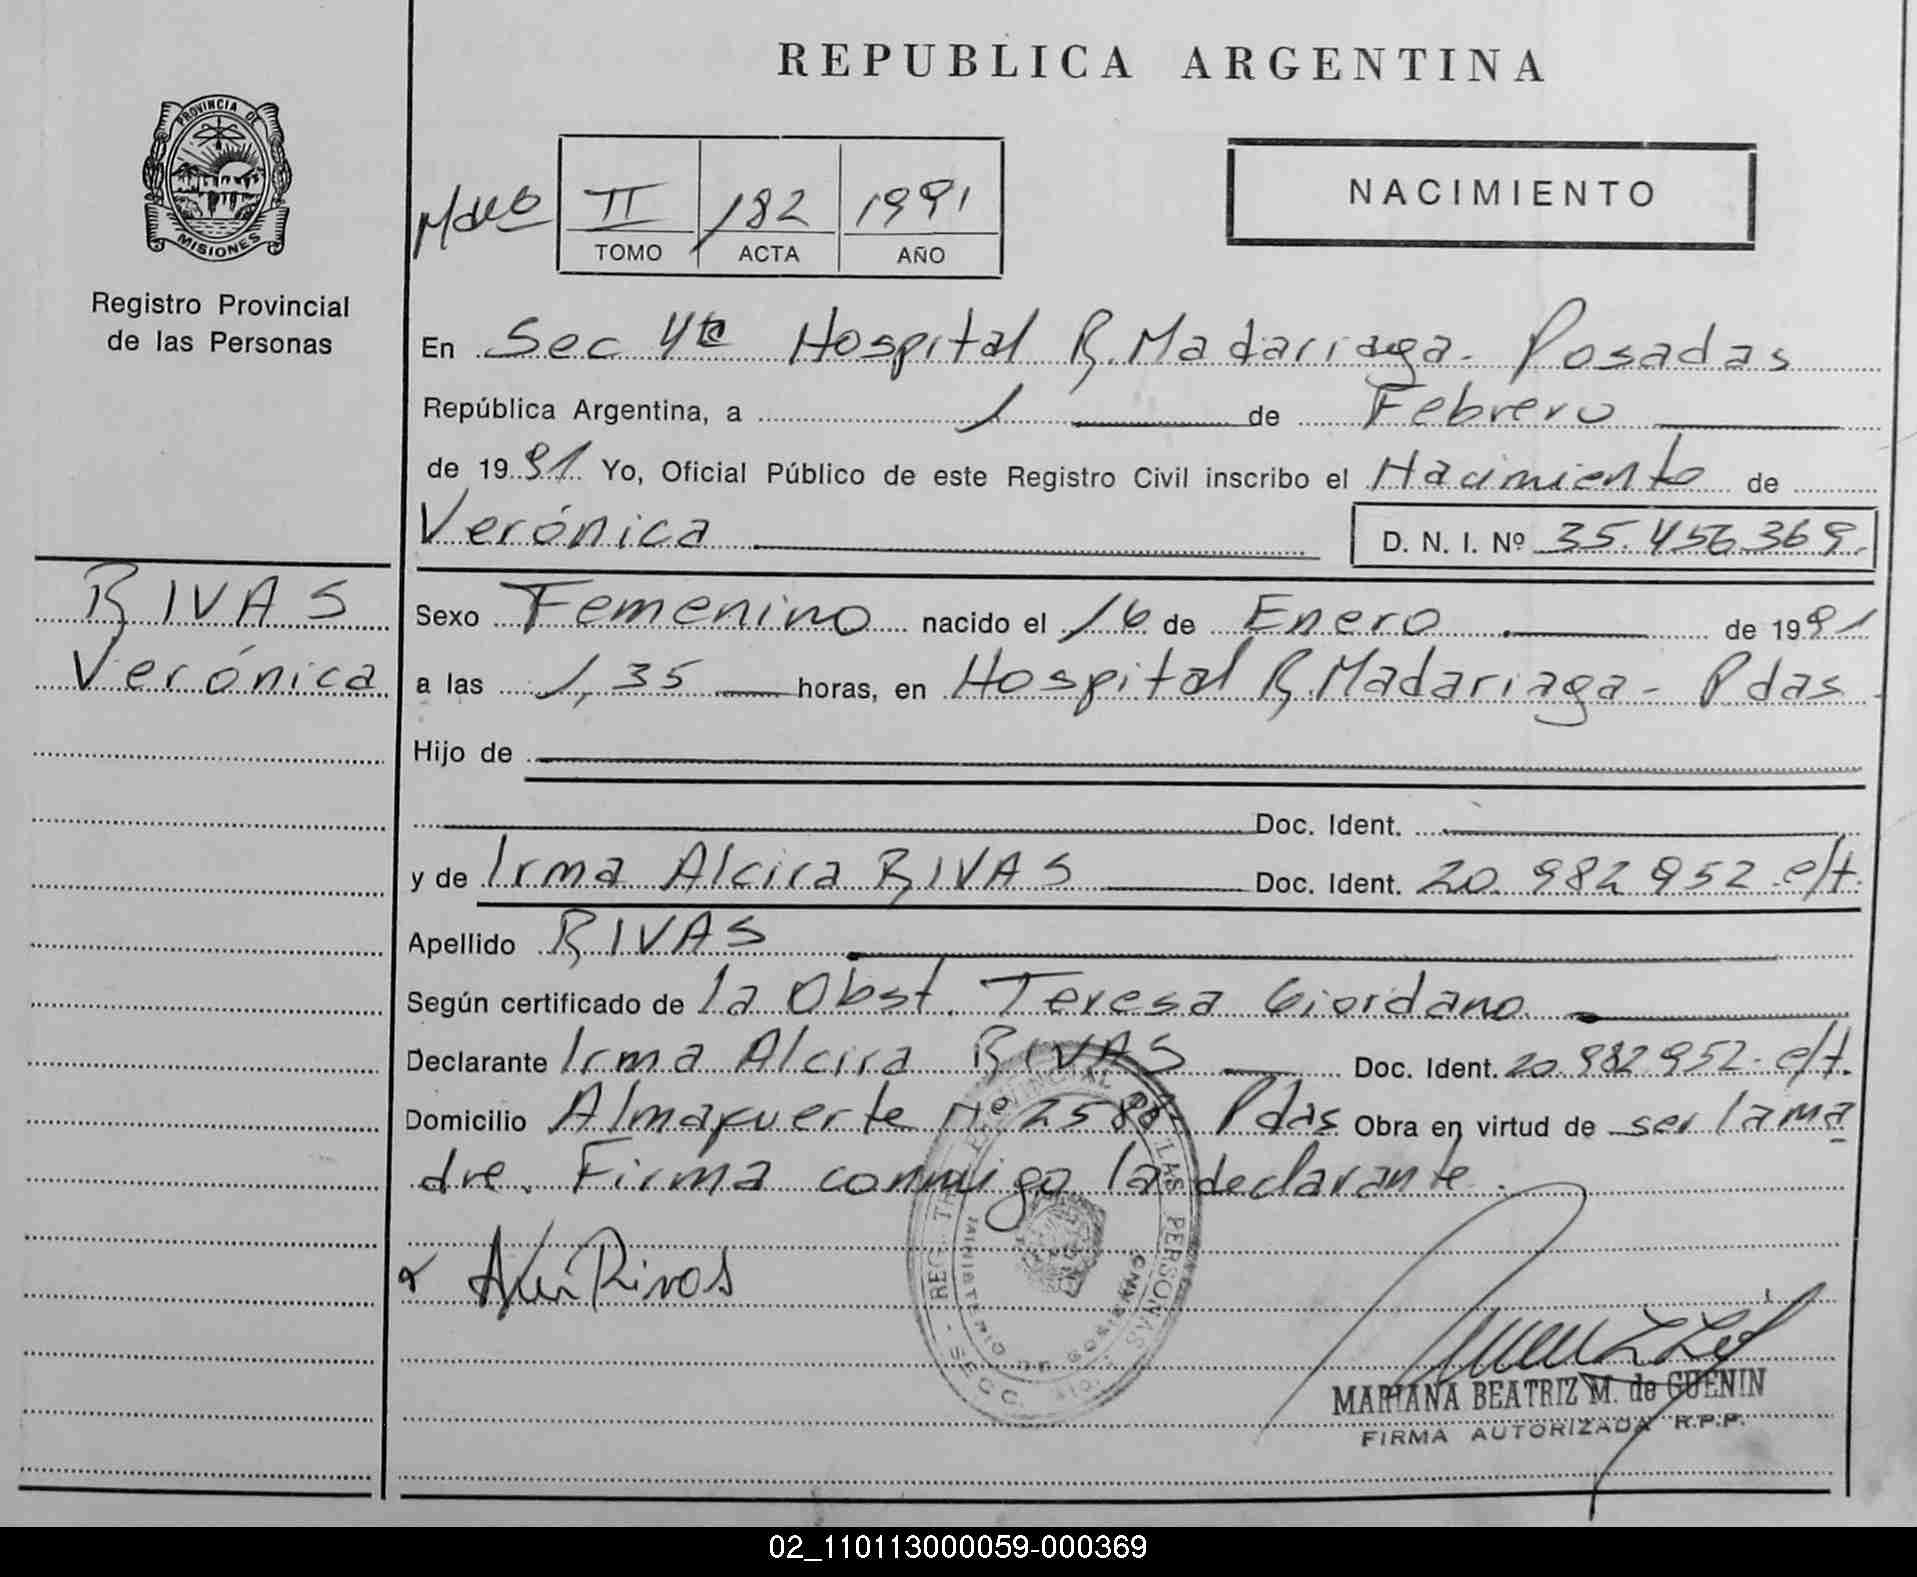 REPUBLICA ARGENTINA
PROVINCIA DE
MISIONES
Registro Provincial
de las Personas
NACIMIENTO
II 182 1991
TOMO ACTA AÑO
En Sec 4ta Hospital R. Madariaga - Posadas
República Argentina, a 1 de Febrero
de 1991 Yo, Oficial Público de este Registro Civil inscribo el Nacimiento de
Verónica D. N. I. Nº 35.456.369.
RIVAS
Verónica
Sexo Femenino nacido el 16 de Enero de 1991
a las 1,35 horas, en Hospital R. Madariaga - Pdas.
Hijo de
Doc. Ident.
y de Irma Alcira RIVAS Doc. Ident. 20.982.952 e/t.
Apellido RIVAS
Según certificado de la Obst. Teresa Giordano
Declarante Irma Alcira RIVAS Doc. Ident. 20.982.952 e/t.
Domicilio Almafuerte Nº 2588 - Pdas Obra en virtud de ser la ma
dre. Firma conmigo la declarante.
Rivas
LAS PERSONAS
MINISTERIO DE GOBIERNO
SECC.
MARIANA BEATRIZ M. de GUENIN
FIRMA AUTORIZADA R.P.P.
02_110113000059-000369